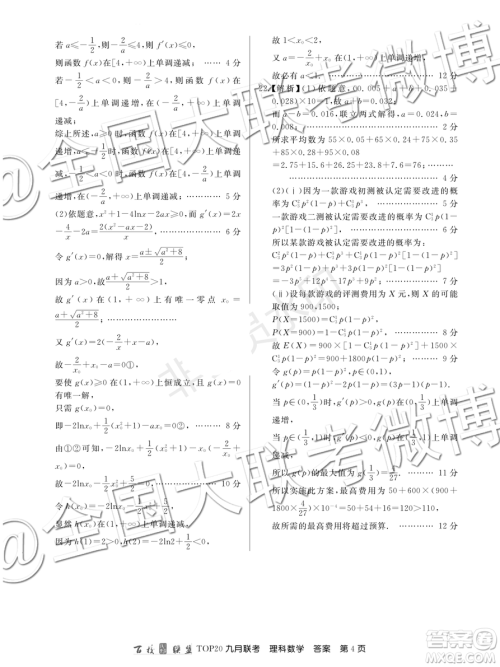 若a≤-1/2,则-2/a≤4,
则函数f(x)在[4,+∞)上单调递减; …… 4分
若-1/2<a<0,则-2/a>4,则函数f(x)在
[4,-2/a)上单调递增,在(-2/a,+∞)上单调
递减;
综上所述,当a≤-1/2时,函数f(x)在[4,+∞)上单调
递增,在(-2/a,+∞)上单调递减; …… 5分
(2)依题意,x²+1-4lnx-2ax=0,
4/x-2a=2(x²-ax-2)/x. …… 6分
令g'(x)=0,解得x=(a±√(a²+8))/2.
因为a>0,故(a+√(a²+8))/2>1,
故g'(x)在(1,+∞)上有唯一零点x₀=
(a+√(a²+8))/2,
又g'(x)=2(-2/x+x-a),
故-2/x₀+x₀-a=0①.
要使g(x)≥0在(1,+∞)上恒成立,且g(x)=0
有唯一解,
只需g(x₀)=0,
即-2lnx₀+1/2(x₀²+5)-ax₀=0②.
由①②可知-2lnx₀+1/2(x₀²+5)+2-x₀²=0,
故-2lnx₀-1/2x₀²+5/2=0.
令h(x₀)=-2lnx₀-1/2x₀²+5/2,
显然h(x₀)在(1,+∞)上单调递减,
因为h(1)=2>0,h(2)=-2ln2+1/2<0,
故1<x₀<2.
又a=-2/x₀+x₀在(1,+∞)上单调递增,
故必有a<1. …… 12分
22.【解析】(1)依题意,(0.005+a+b+0.035+
0.028)×10=1,故a+b=0.032;
而a-b=0.016,联立两式解得,
a=0.024,b=0.008. …… 2分
所求平均数为55×0.05+65×0.24+75×0.35
+85×0.28+95×0.08
=2.75+15.6+26.25+23.8+7.6=76;
…… 4分
(2)(i)因为一款游戏初测被认定需要改进的概
率为C₃²p²(1-p)+C₃³p³,
一款游戏二测被认定需要改进的概率为C₃¹p(1-
p)²[1-(1-p)²].
所以某款游戏被认定需要改进的概率为:
C₃²p²(1-p)+C₃³p³+C₃¹p(1-p)²[1-(1-p)²]
=-3p⁵+12p⁴-17p³+9p². …… 7分
(ii)设每款游戏的评测费用为X元,则X的可能
取值为900,1500;
P(X=1500)=C₃¹p(1-p)²,
P(X=900)=1-C₃¹p(1-p)².
令g(p)=p(1-p)²,p∈(0,1),
当p∈(0,1/3)时,g'(p)>0,g(p)在(0,1/3)上单调
递增,
当p∈(1/3,1)时,g'(p)<0,g(p)在(1/3,1)上单调
递减,
所以g(p)的最大值为g(1/3)=4/27.
所以实施此方案,最高费用为50+600×(900+
1800×4/27)×10⁻⁴=50+54+16=120>110,
故所需的最高费用将超过预算. …… 12分
@全国大联考微博
@全国大联考微博
百校联盟 TOP20九月联考 理科数学 答案 第4页